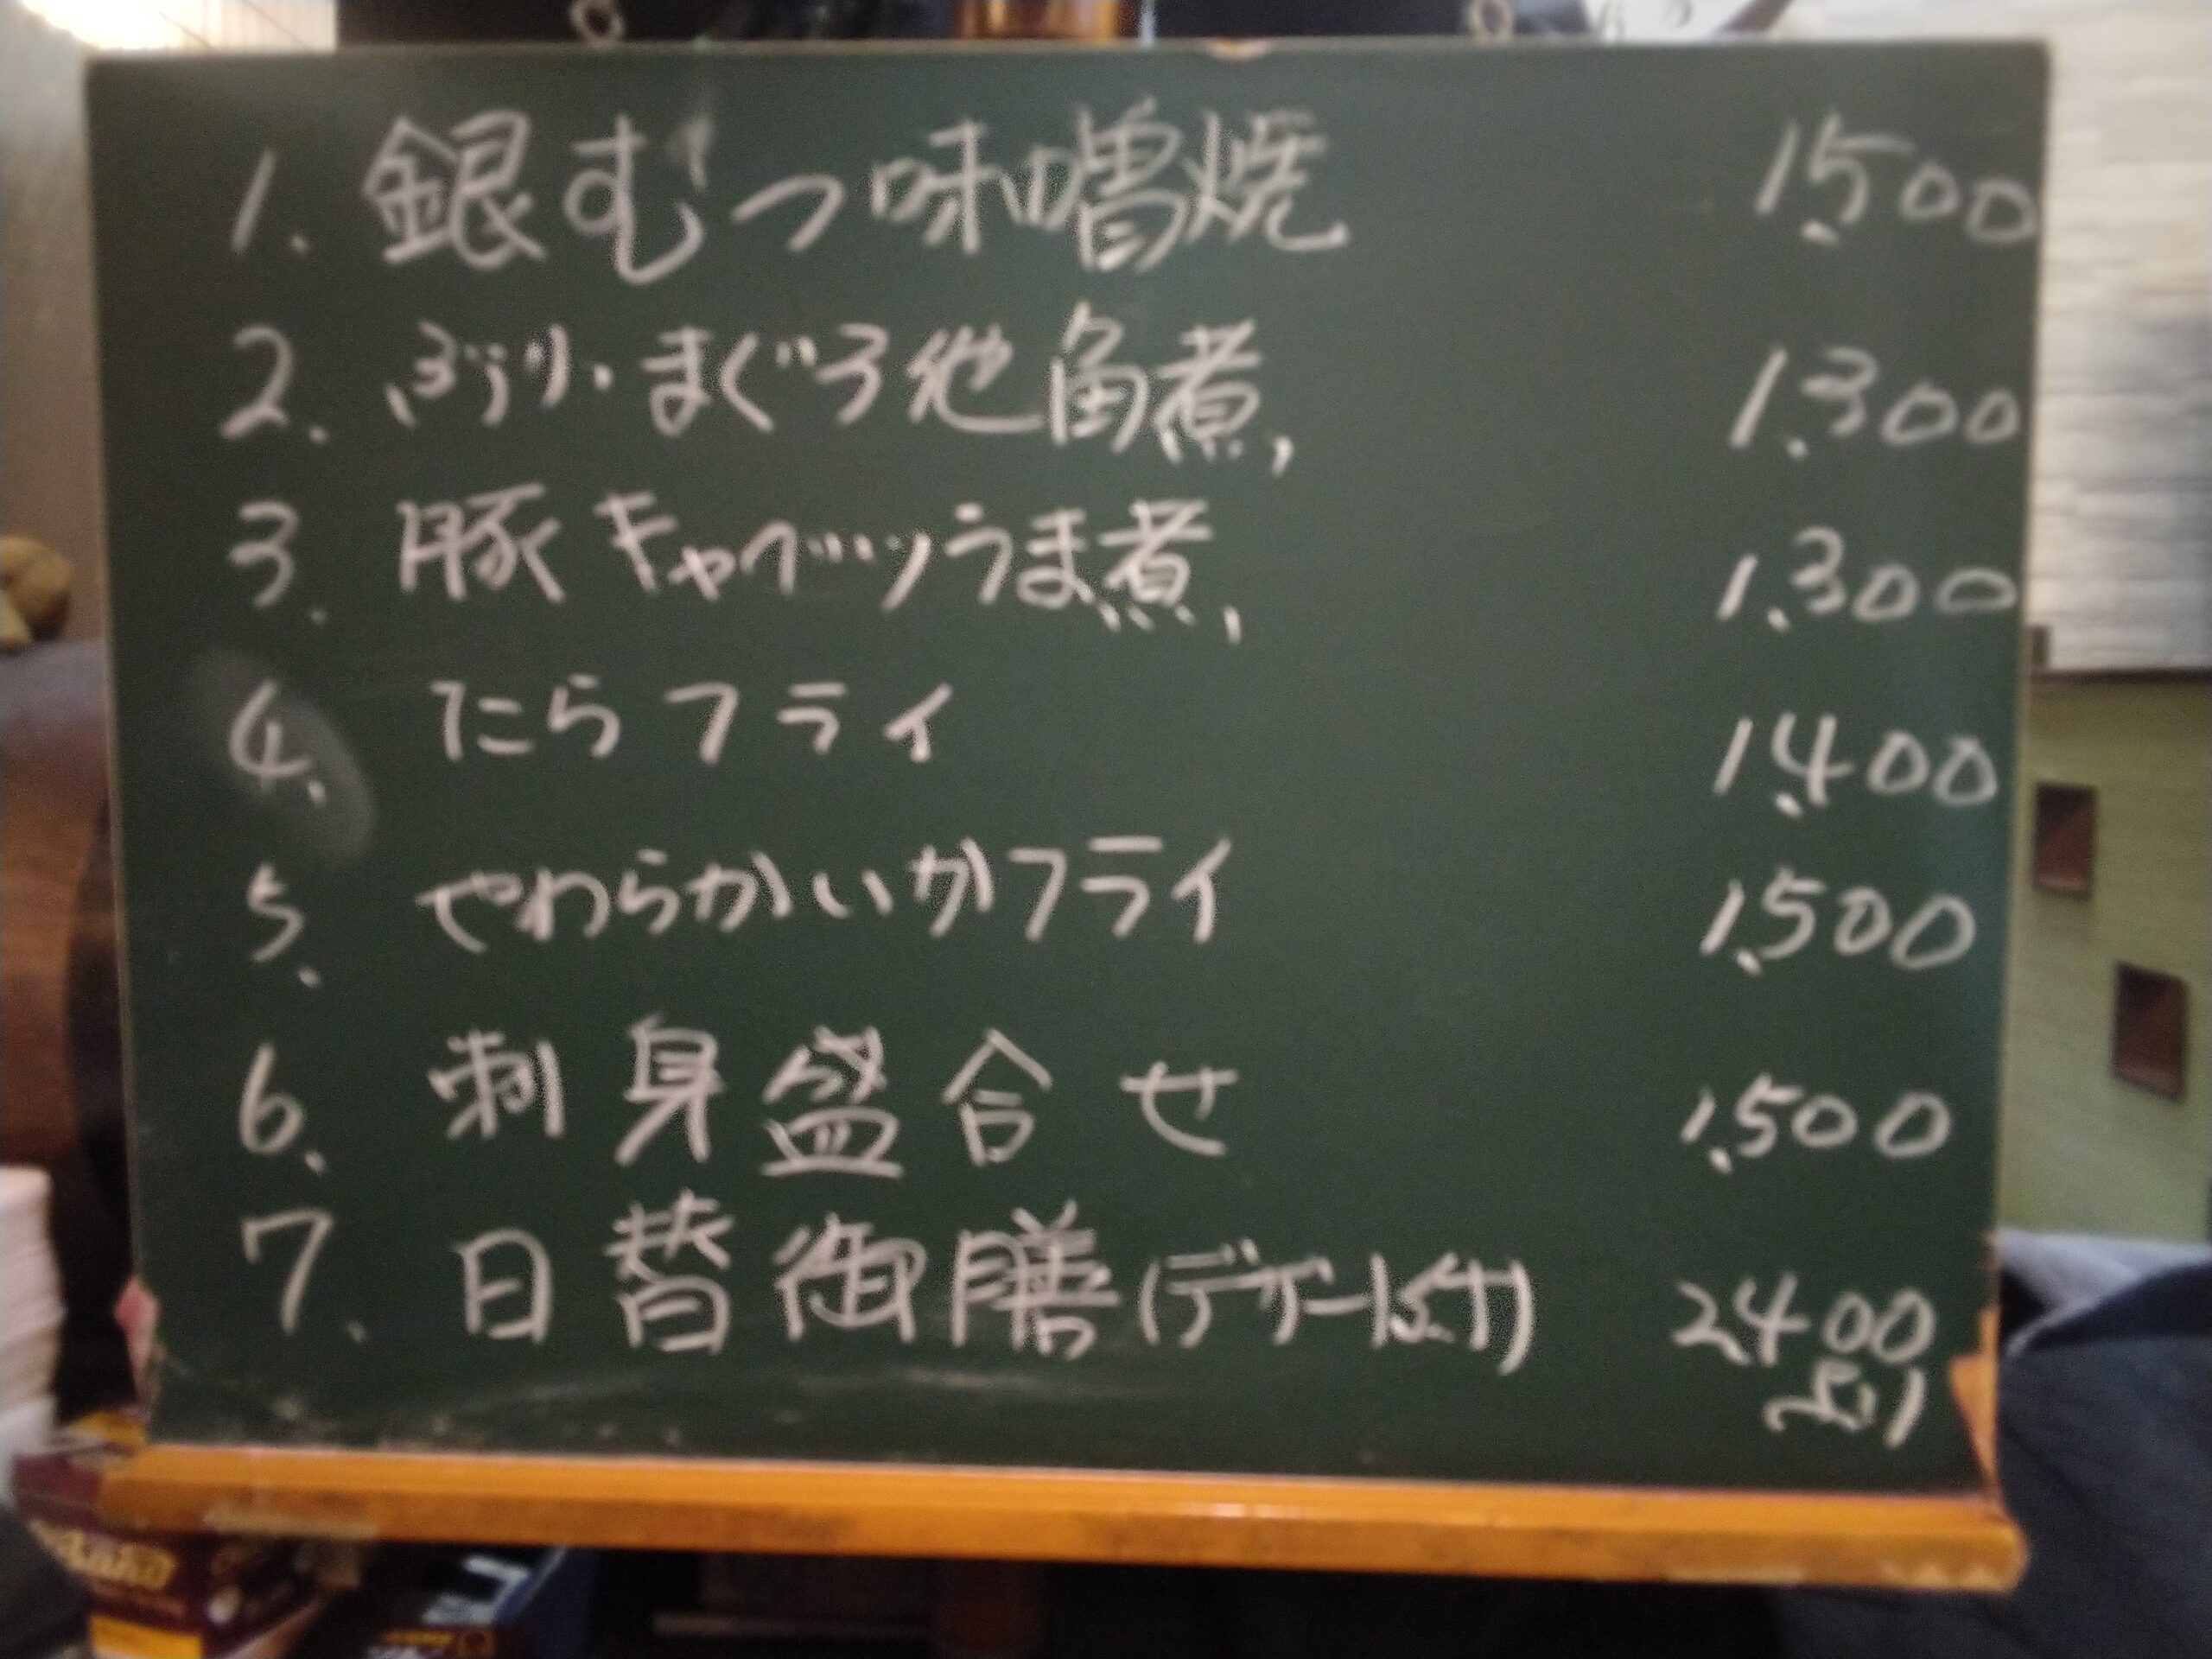 1. 銀むつ味噌焼 1,500
2. ぶり・まぐろ他角煮 1,300
3. 豚キャベツうま煮 1,300
4. たらフライ 1,400
5. やわらかいかフライ 1,500
6. 刺身盛合せ 1,500
7. 日替御膳(デザート付) 2400
より